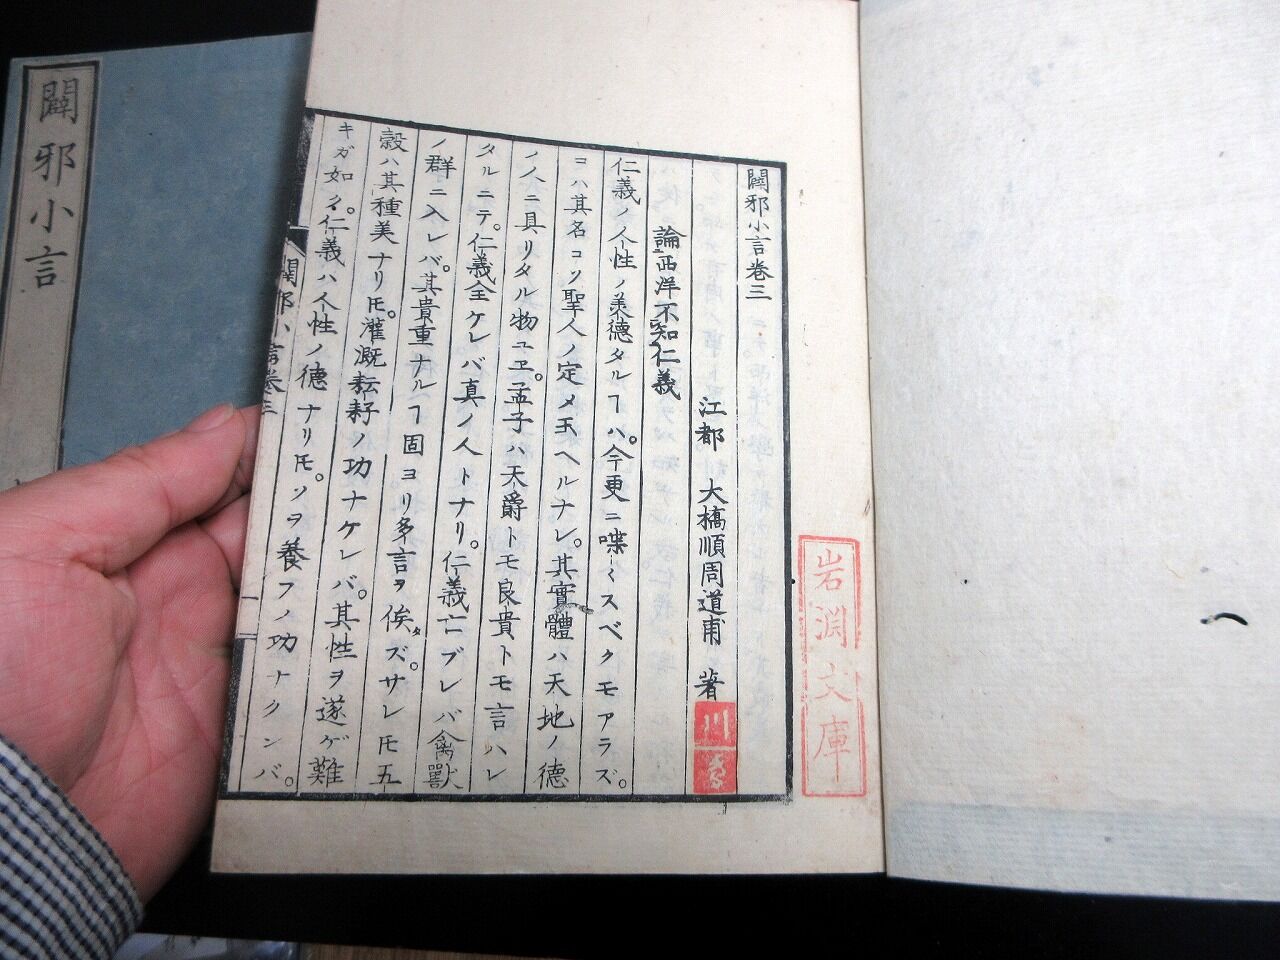 闢邪小言卷三
江都 大橋順周道甫 著
論西洋不知仁義
仁義ノ人性ノ美德タルヿハ。今更ニ喋〱スベクモアラズ。
コハ其名コソ聖人ノ定メ玉ヘルナレ。其實體ハ天地ノ德
ノ人ニ具リタル物ユヱ。孟子ハ天爵トモ良貴トモ言ハレ
タルニテ。仁義全ケレバ真ノ人トナリ。仁義亡ブレバ禽獸
ノ群ニ入レバ。其貴重ナルヿ固ヨリ多言ヲ俟タズ。サレ𪜈五
穀ハ其種美ナリ𪜈。灌漑耘耔ノ功ナケレバ。其性ヲ遂ゲ難
キガ如ク。仁義ハ人性ノ德ナリ𪜈。ソヲ養フノ功ナクンバ。
闢邪小言卷三
岩淵文庫
闢邪小言